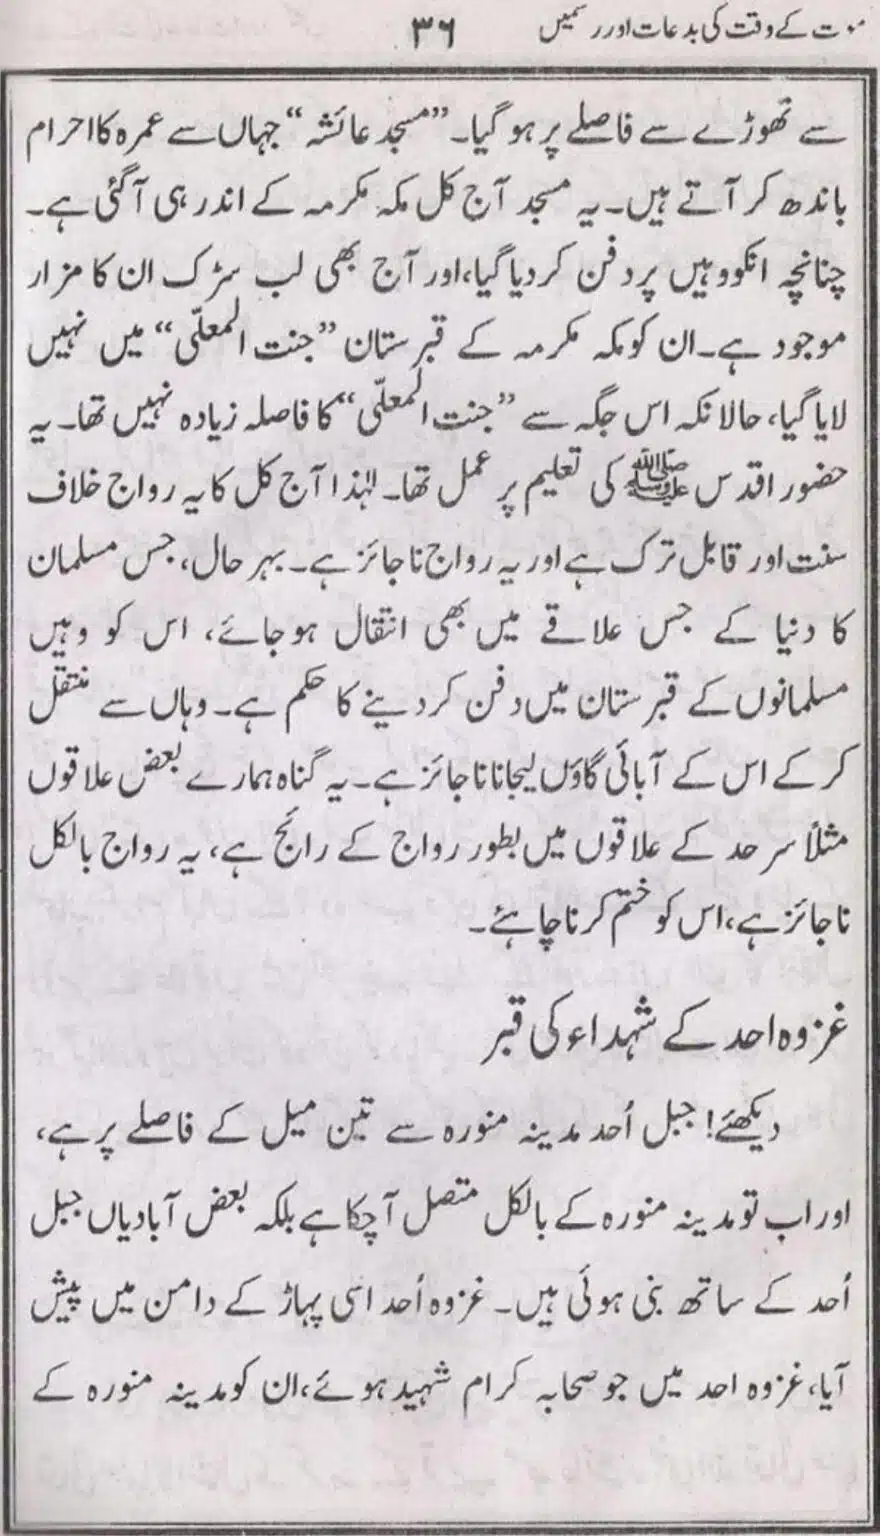 موت کے وقت کی بدعات اور رسمیں ۳۶
سے تھوڑے سے فاصلے پر ہو گیا۔ ”مسجد عائشہ“ جہاں سے عمرہ کا احرام
باندھ کر آتے ہیں۔ یہ مسجد آج کل مکہ مکرمہ کے اندر ہی آگئی ہے۔
چنانچہ انکو وہیں پر دفن کر دیا گیا، اور آج بھی لب سڑک ان کا مزار
موجود ہے۔ ان کو مکہ مکرمہ کے قبرستان ”جنت المعلّی“ میں نہیں
لایا گیا، حالانکہ اس جگہ سے ”جنت المعلّی“ کا فاصلہ زیادہ نہیں تھا۔ یہ
حضور اقدس ﷺ کی تعلیم پر عمل تھا۔ لہٰذا آج کل کا یہ رواج خلاف
سنت اور قابل ترک ہے اور یہ رواج ناجائز ہے۔ بہر حال، جس مسلمان
کا دنیا کے جس علاقے میں بھی انتقال ہو جائے، اس کو وہیں
مسلمانوں کے قبرستان میں دفن کر دینے کا حکم ہے۔ وہاں سے منتقل
کر کے اس کے آبائی گاؤں لیجانا ناجائز ہے۔ یہ گناہ ہمارے بعض علاقوں
مثلاً سرحد کے علاقوں میں بطور رواج کے رائج ہے، یہ رواج بالکل
ناجائز ہے، اس کو ختم کرنا چاہئے۔
غزوہ احد کے شہداء کی قبر
دیکھئے! جبل اُحد مدینہ منورہ سے تین میل کے فاصلے پر ہے،
اور اب تو مدینہ منورہ کے بالکل متصل آچکا ہے بلکہ بعض آبادیاں جبل
اُحد کے ساتھ بنی ہوئی ہیں۔ غزوہ اُحد اسی پہاڑ کے دامن میں پیش
آیا، غزوہ احد میں جو صحابہ کرام شہید ہوئے، ان کو مدینہ منورہ کے